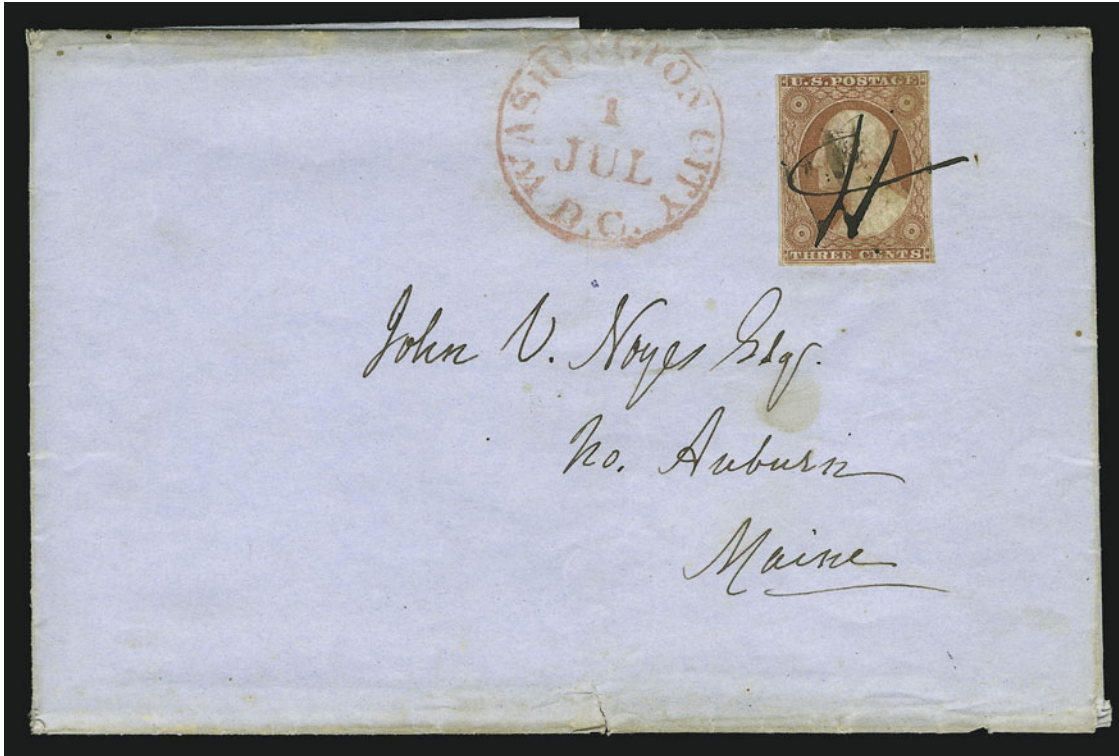 WASHINGTON CITY
1
JUL
D.C.
U.S. POSTAGE
THREE CENTS
John V. Noyes Esq.
No. Auburn
Maine